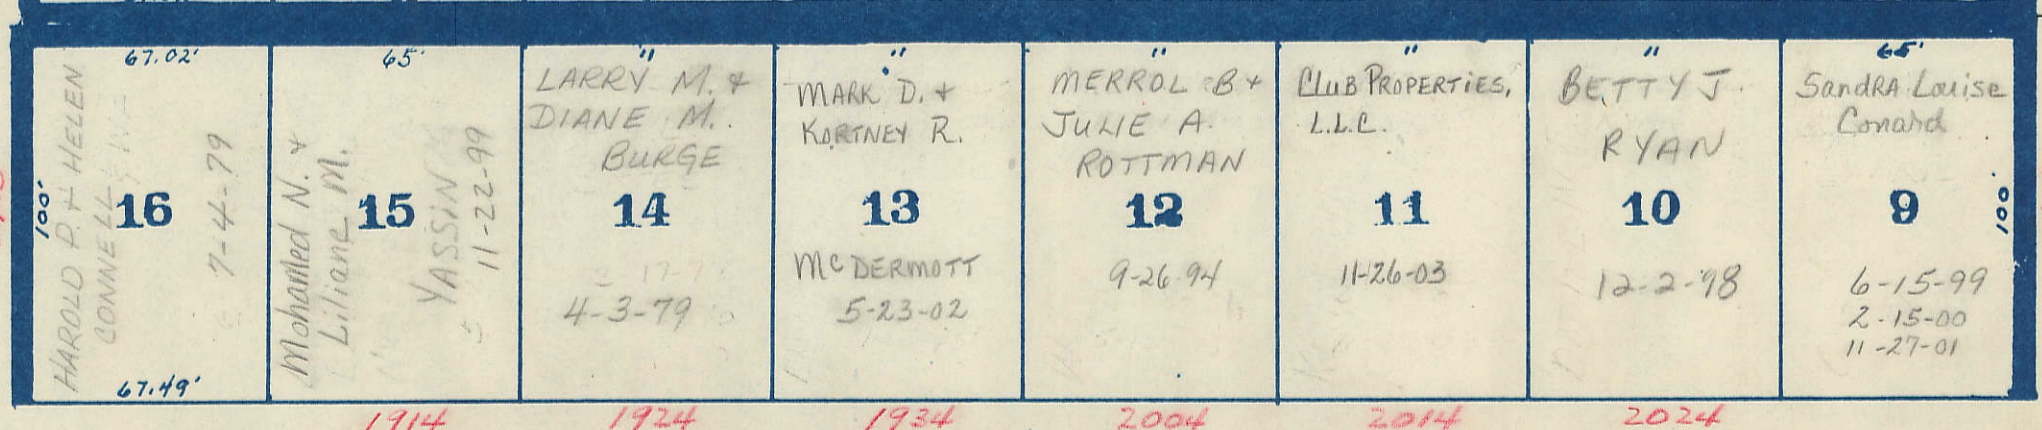 67.02'
HAROLD P. & HELEN
CONNELL
100'
16
7-4-79
67.49'
65'
Mohamed N. &
Liliane M.
15
YASSIN
11-22-99
"
LARRY M. &
DIANE M.
BURGE
14
4-3-79
"
MARK D. &
KORTNEY R.
13
McDERMOTT
5-23-02
"
MERROL B &
JULIE A.
ROTTMAN
12
9-26-94
"
CLUB PROPERTIES,
L.L.C.
11
11-26-03
"
BETTY J.
RYAN
10
12-2-98
65'
SandRA Louise
Conard
9
100
6-15-99
2-15-00
11-27-01
1914
1924
1934
2004
2014
2024